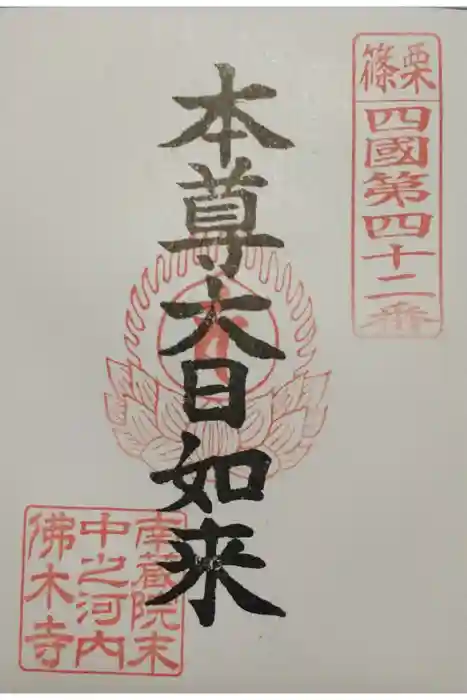 篠栗
四國第四十二番
本尊大日如来
南蔵院末
中之河内
佛木寺